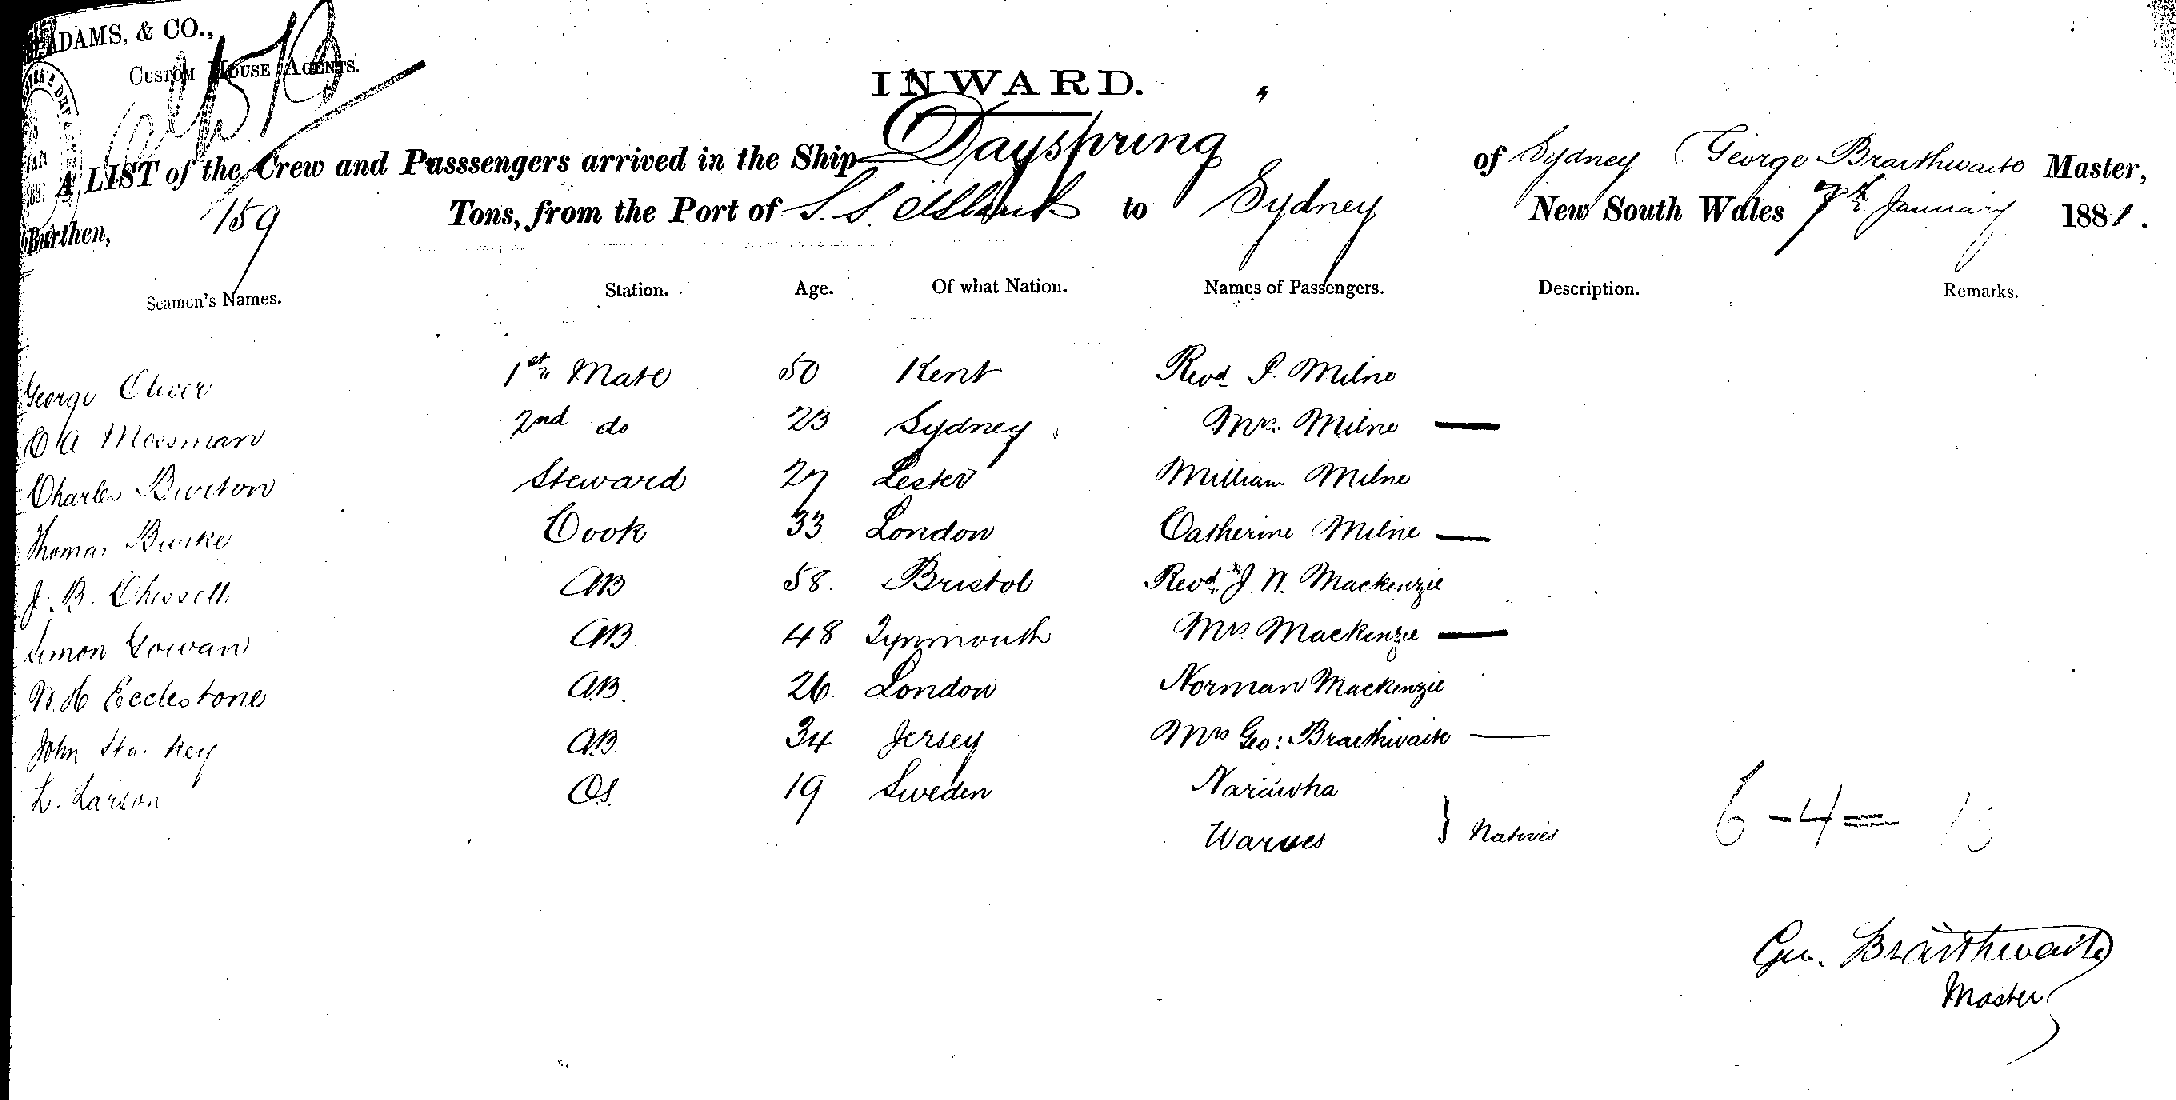 ADAMS, & CO.,
CUSTOM HOUSE AGENTS.
INWARD.
A LIST of the Crew and Passsengers arrived in the Ship Dayspring of Sydney George Braithwaite Master,
Burthen, 159 Tons, from the Port of S. S. Island to Sydney New South Wales 7th January 1881.
Seamen's Names. Station. Age. Of what Nation. Names of Passengers. Description. Remarks.
George Oliver 1st Mate 50 Kent Revd. P. Milne
Mossman 2nd do 23 Sydney Mrs. Milne —
Charles Burton Steward 27 Lester William Milne
Thomas Burke Cook 33 London Catherine Milne —
J. B. Chissell AB 58. Bristol Revd. J. W. Mackenzie
Simon Gowan AB 48 Tynmouth Mrs Mackenzie —
W. H Ecclestone AB. 26 London Norman Mackenzie
John AB 34 Jersey Mrs Geo: Braithwaite —
L. Larson OS. 19 Sweden
} Natives
6 - 4 = 10
Geo. Braithwaite
Master